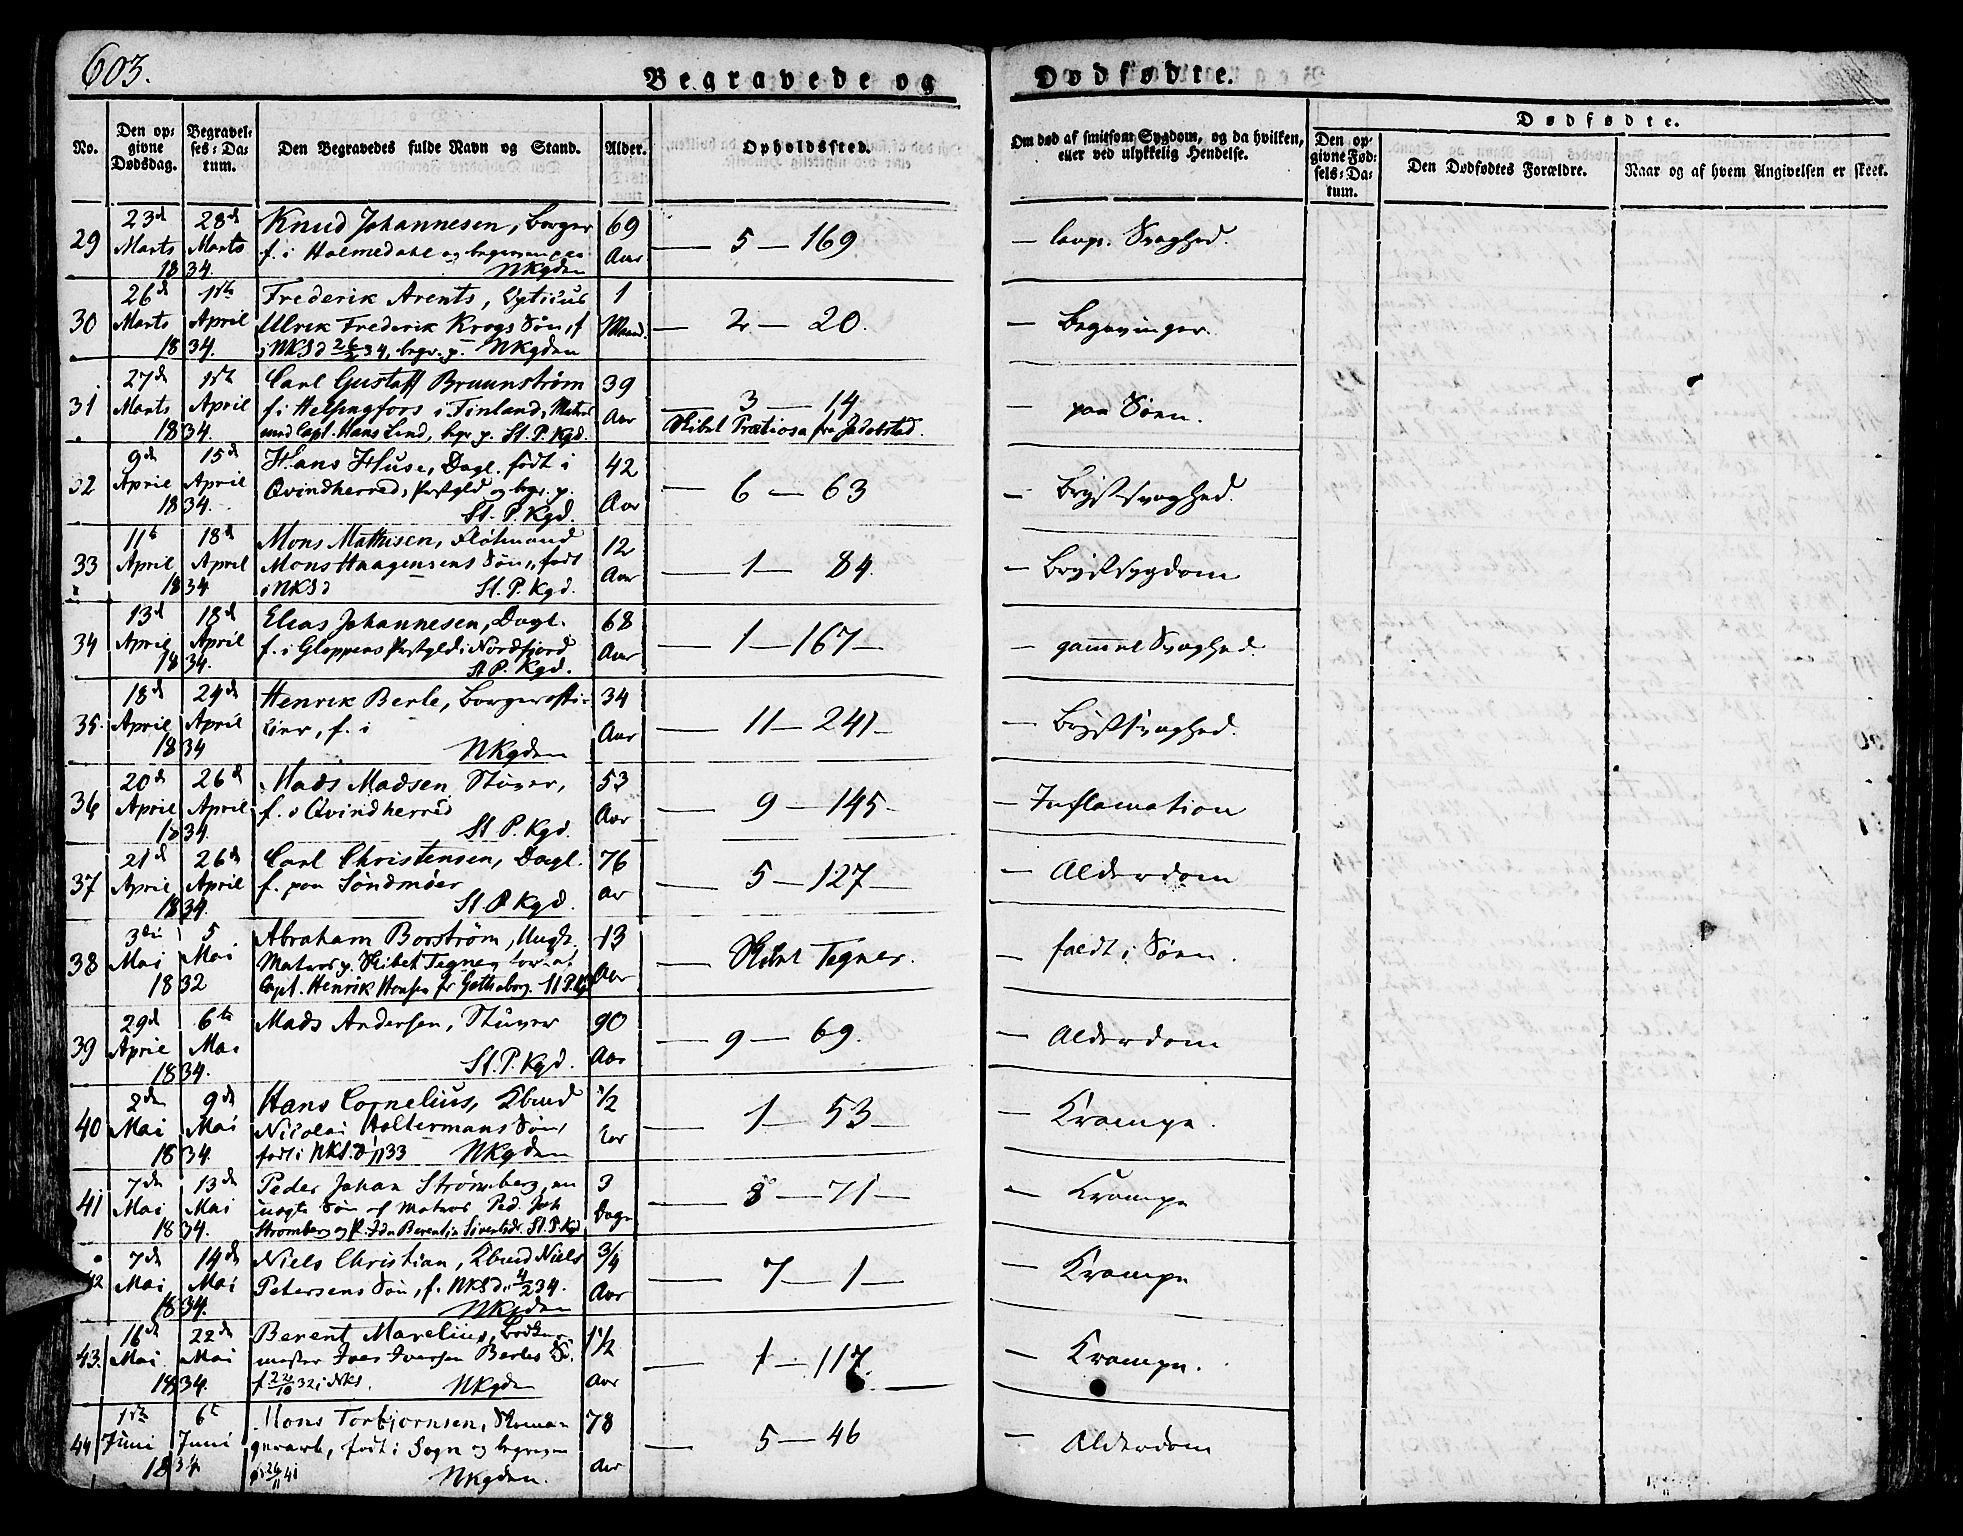 603.
Begravede og Dødfødte.
No.
Den opgivne Dødsdag.
Begravelses-Datum.
Den Begravedes fulde Navn og Stand.
Alder.
Opholdssted.
Om død af smitsom Sygdom, og da hvilken, eller ved ulykkelig Hendelse.
Dødfødte.
Den opgivne Fødsels-Datum.
Den Dødfødtes Forældre.
Naar og af hvem Angivelsen er skeet.
29 23d Marts 1834. 28d Marts
Knud Johannesen, Borger
f. i Holmedahl og
NKgden
69 Aar
— 5 — 169
— Svaghed.
30 26d Marts 1834. 1ste April
Frederik Arents,
Ulrik Frederik Krogs Søn, f
i NKSd 26 34, begr. p. NKgden
1 Maaned.
— 2 — 20.
—
31 27d Marts 1834. 1ste April
Carl Gustaff Bruunstrøm
f. i Helsingfors i Finland, Matros
med Capt. Hans Lind, begr. p. St. P. Kgd.
39 Aar
— 3 — 14
Skibet Pretiosa fra Jacobstad.
— paa Søen.
32 9d April 1834. 15d April
Hans Huse, Dagl. født i
Qvindherred, Præstgld og begr. p.
St. P. Kgd.
42 Aar
— 6 — 63
— Brystsvaghed.
33 11te April 1834 18d April
Mons Mathisen, Flotmand
Mons Haagensens Søn, født
i NKSd St. P. Kgd.
12 Aar
— 1 — 84.
— Brystsygdom
34 13d April 1834. 18d April
Elias Johannesen, Dagl.
f. i Gloppens Præstgld i Nordfjord
St P. Kgd.
68 Aar
— 1 — 167 —
— gammel Svaghed.
35. 18d April 1834 24d April
Henrik Berle, Borgerofficier, f. i
NKgden
34 Aar
— 11 — 241 —
— Brystsvaghed.
36 20d April 1834. 26d April
Mads Madsen Stuver,
f. i Qvindherred
St. P. Kgd.
53 Aar
— 9 — 145 —
— Inflamation
37 21d April 1834. 26d April
Carl Christensen, Dagl.
f. paa Søndmøer
St. P. Kgd.
76 Aar
— 5 — 127 —
— Alderdom
38 3die Mai 1832 5 Mai
Abraham Borstrøm, Ungk.
Matros p. Skibet Tegner
Capt. Henrik Hansen fr Gotheborg. St P. Kgd
13 Aar
— Skibet Tegner.
— faldt i Søen.
39 29d April 1834. 6te Mai
Mads Andersen, Stuver
St. P. Kgd.
90 Aar
— 9 — 69.
— Alderdom
40 2den Mai 1834. 9de Mai
Hans Cornelius,
Nicolai Holtermans Søn,
født i NKSd 33 NKgden
1/2 Aar
— 1 — 53 —
— Krampe.
41 7de Mai 1834. 13de Mai
Peder Johan Strømberg, en
uægte Søn af Matros Ped. Joh
Strømberg og P. Ida Berentin St. P. Kgd
3 Dage
— 8 — 71 —
— Krampe
42 7de Mai 1834. 14de Mai
Niels Christian, Niels
Petersens Søn, f. NKSd. 4/2 34.
NKgden
3/4 Aar
— 7 — 1 —
— Krampe
43. 16de Mai 1834. 22de Mai
Berent Marelius,
mester Iver Iversen Berles Sø.
f 22/10 32 i NKS. NKgden
1 1/2 Aar
— 1 — 117.
— Krampe.
44 1ste Juni 1834 6te Juni
Mons Torbjørnsen,
født i Sogn og
NKgden.
78 Aar
— 5 — 46
— Alderdom